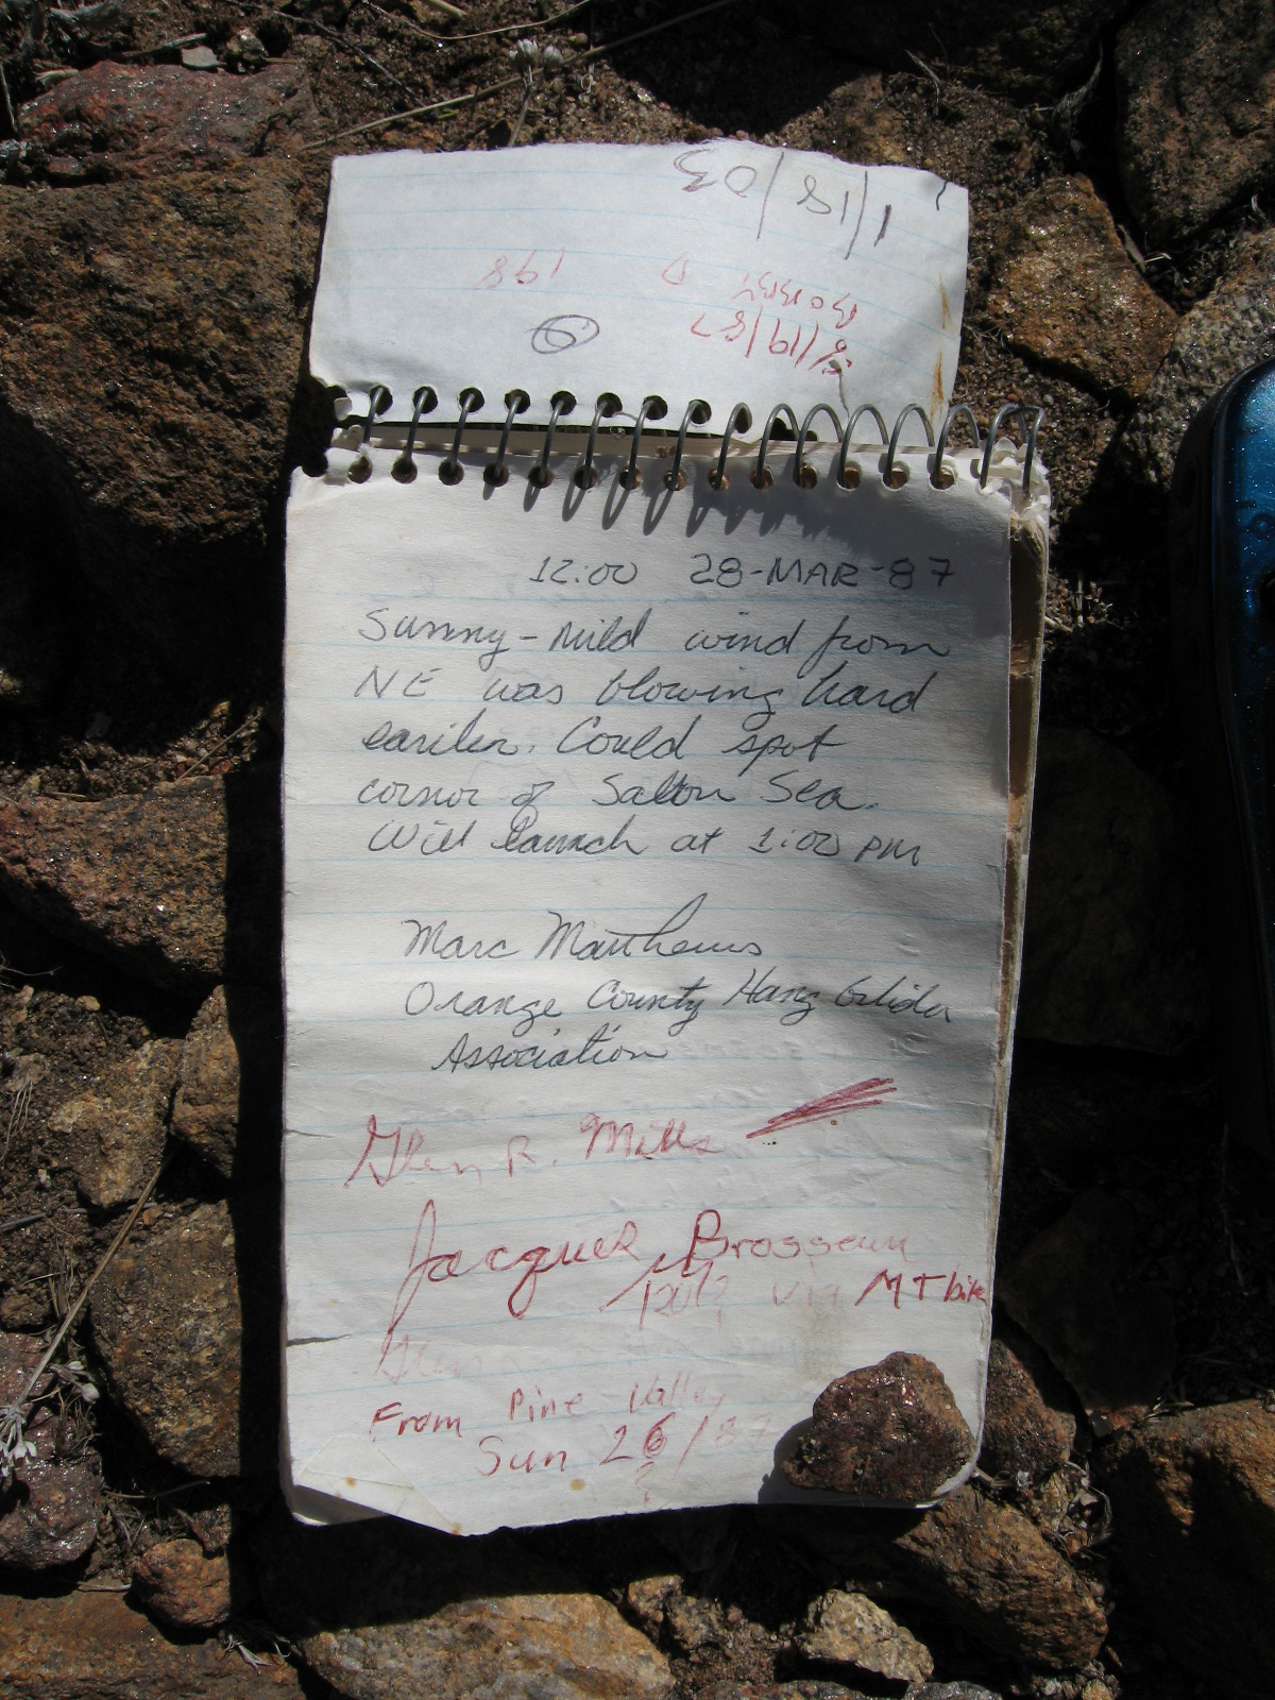 1/18/03
8/19/87
BOBBY D 198
6
12:00 28-MAR-87
Sunny - mild wind from
NE was blowing hard
eariler. Could spot
cornor of Salton Sea.
Will launch at 1:00 PM
Marc Matthews
Orange County Hang Glider
Association
Glen R. Mills
Jacques Brosseau
via MT bike
Glen
From Pine Valley
Sun 26/87
?